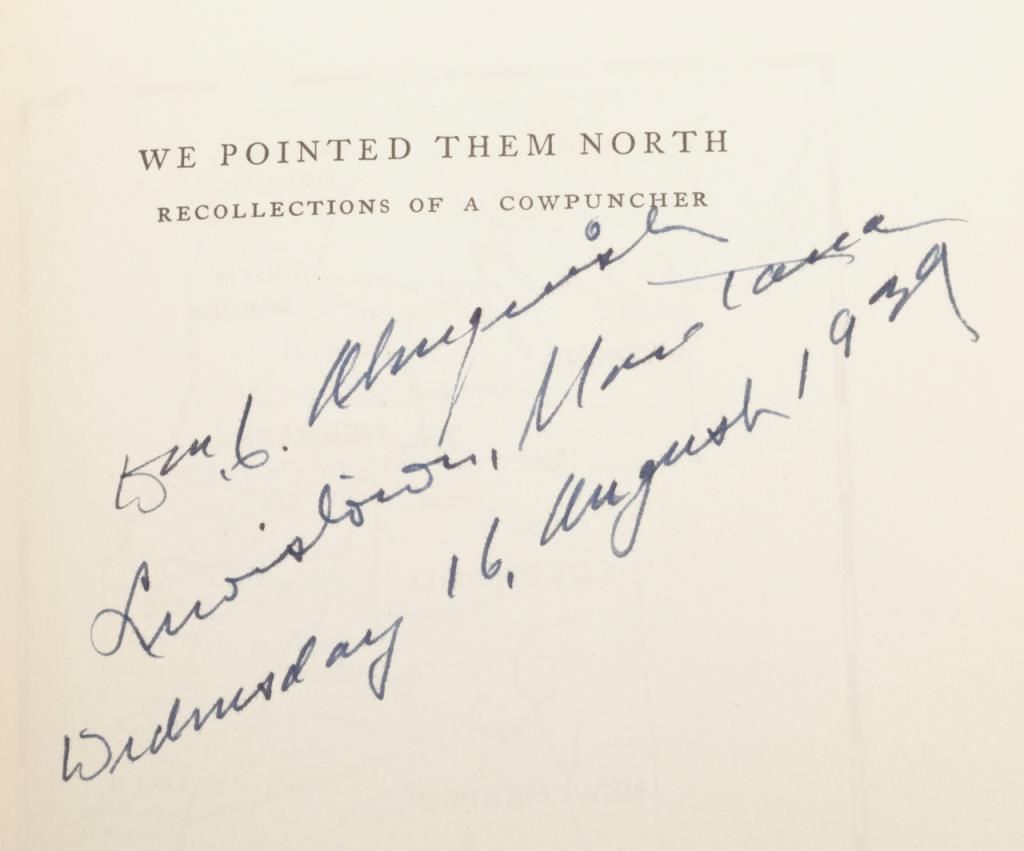 WE POINTED THEM NORTH
RECOLLECTIONS OF A COWPUNCHER
Wm. C. Almquist
Lewistown, Montana
Wednesday 16, August 1939